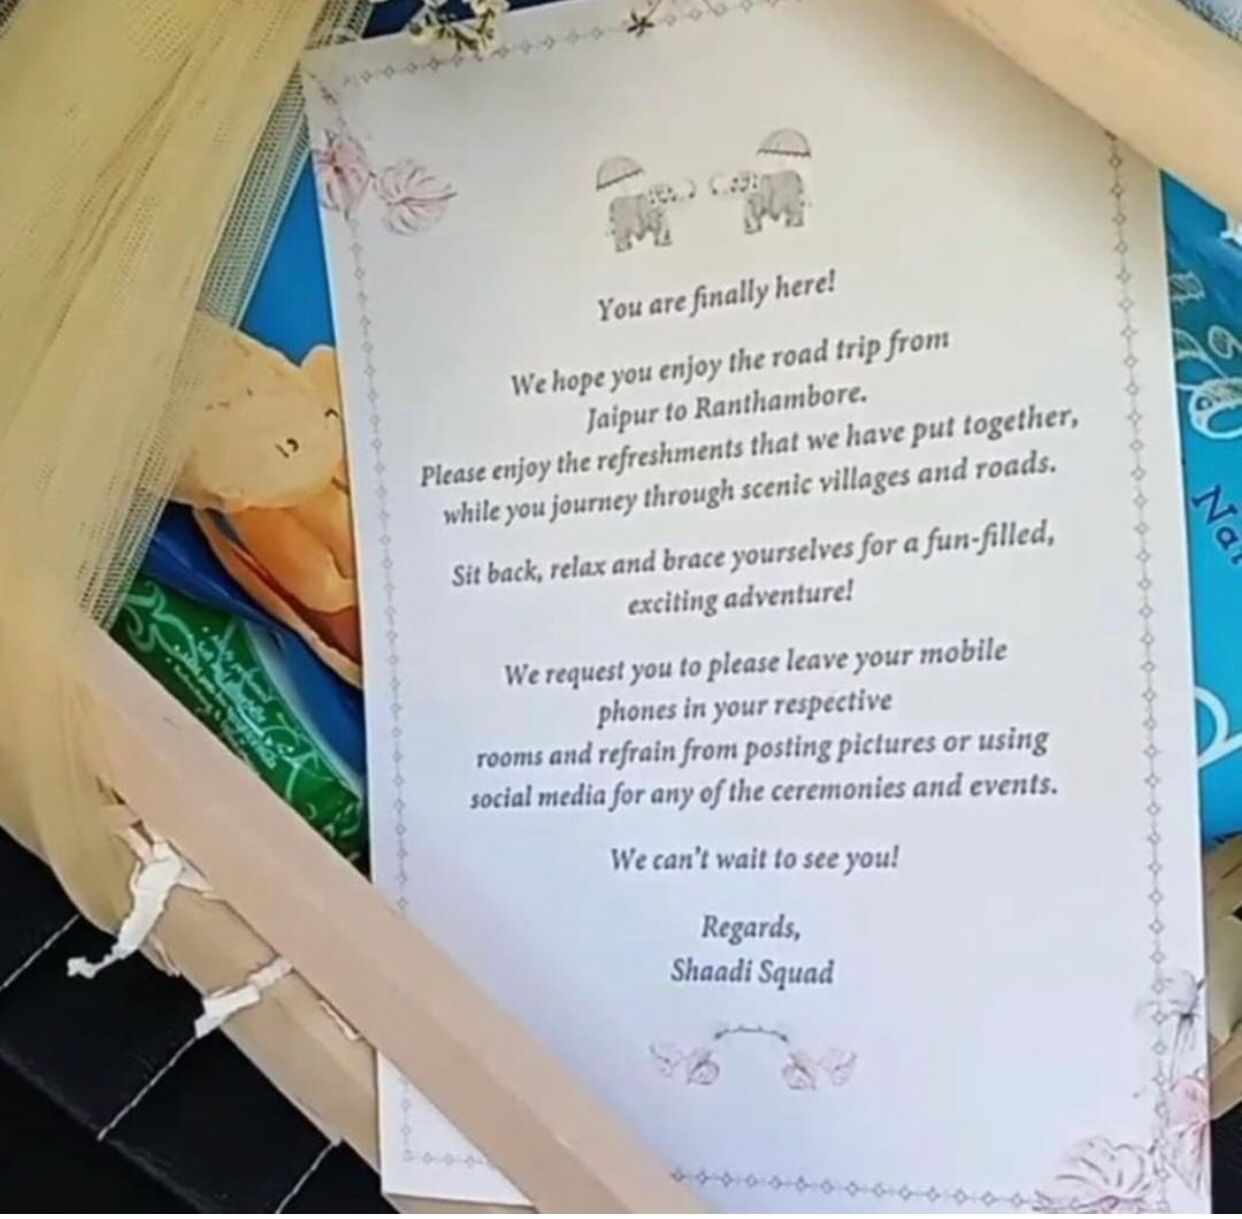 You are finally here!
We hope you enjoy the road trip from
Jaipur to Ranthambore.
Please enjoy the refreshments that we have put together,
while you journey through scenic villages and roads.
Sit back, relax and brace yourselves for a fun-filled,
exciting adventure!
We request you to please leave your mobile
phones in your respective
rooms and refrain from posting pictures or using
social media for any of the ceremonies and events.
We can't wait to see you!
Regards,
Shaadi Squad